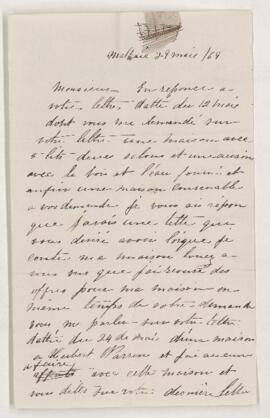 Malbaie 29 mais /69
Monsieur En réponce a
votre lettre datté du 12 mai
dont vous me demandé sur
votre lettre une maison avec
5 lits deux salons et une cuisine
avec le bois et l'eau fourni et
enfin une maison convenable
a vos demande je vous ai répon
que j'avais une telle que
vous désiré avoir lorsque je
ma maison louez a
mes vus que j'ai recu des
offres pour ma maison en
même temps de votre demande
vous me parler sur votre lettre
dattée du 24 de mai d'une maison
a Herbert Warren et j'ai aucun
afaire avec cette maison et
vous dites sur votre dernière lettre